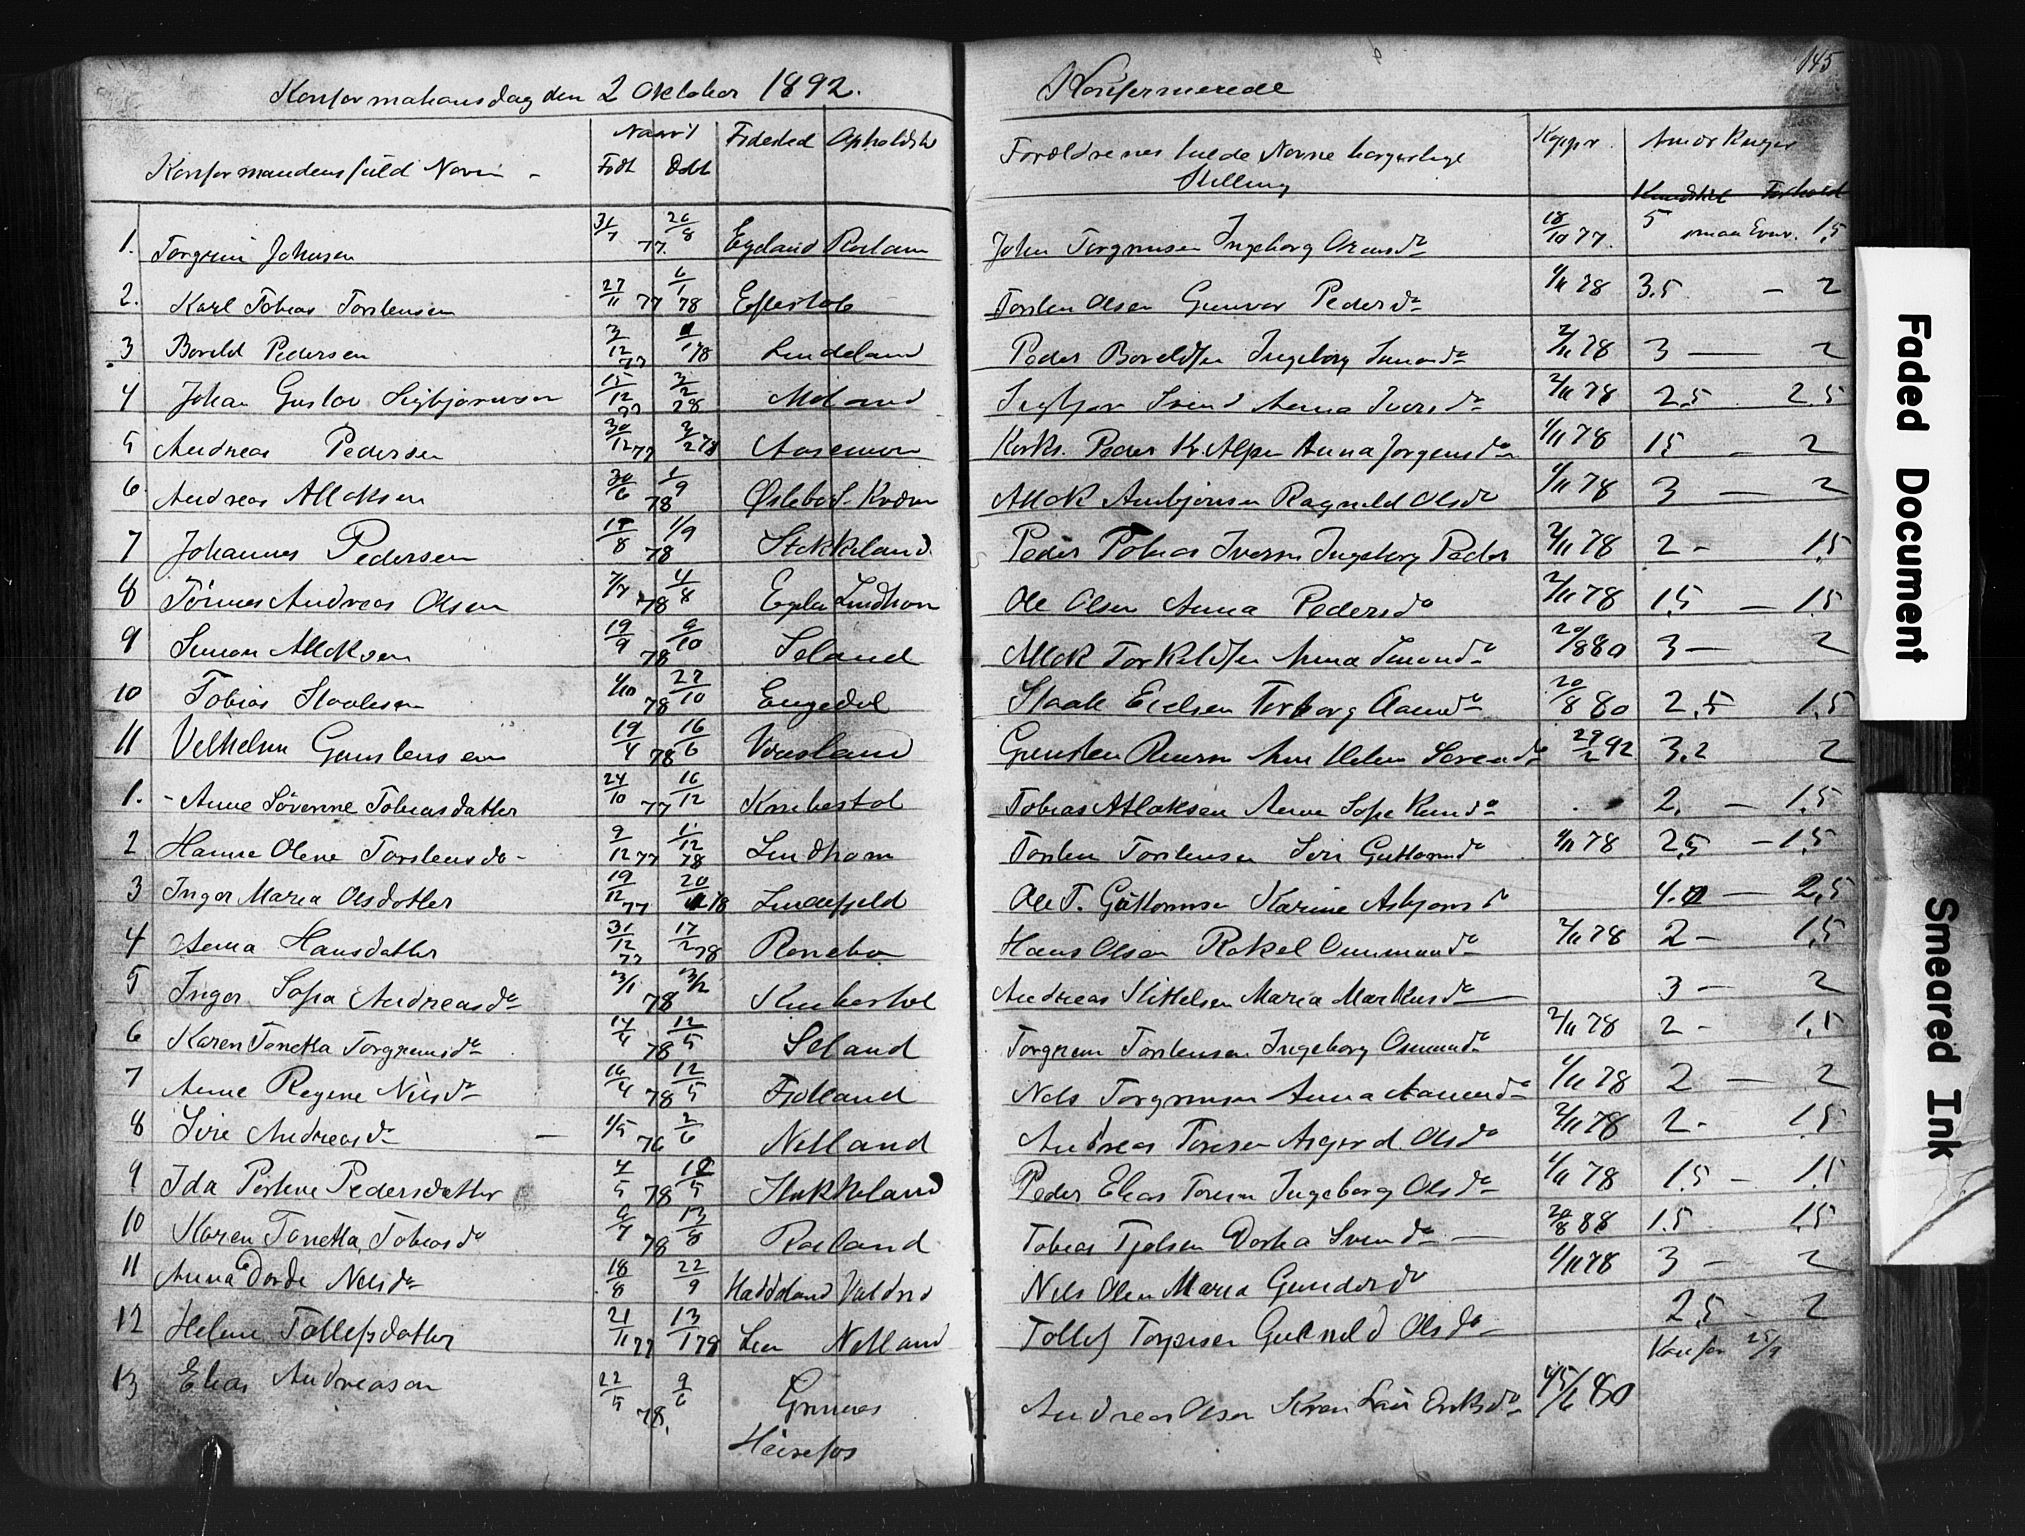 145
Konfirmationsdag den 2 Oktober 1892. Konfirmerede
Konfirmandens fuld Navn Født Døbt Fødested Opholdst Forældrenes fulde Navne borgerlige Stilling Kopper Anmærkninger
Kundskab Forhold
1. Torgrim Johnsen 31/7 77. 26/8 Egeland Røslan John Torgrimsen Ingeborg 18/10 77. 5 smaa Evn. 1,5
2. Karl Tobias Torstensen 27/11 77 6/1 78 Eftestøl Torsten Olsen Gunvor Pedersd 2/11 78 3.5 – 2
3 Boreld Pedersen 3/12 77 1/1 78 Lindeland Peder Boreldsen Ingeborg Simonsd 2/11 78 3 — 2
4 Johan Gustav Sigbjørnsen 15/12 77 3/2 78 Moland Sigbjør Svend Anna Iversd 2/11 78 2.5 2.5
5 Andreas Pedersen 30/12 77 3/2 78 Aasemon Kirks. Peder Kr. Anna Jørgensd 2/11 78 1.5 – 2
6 Andreas Allaksen 30/6 78 1/9 Øslebø Allak Anbjørnsen Ragnild Olsd 2/11 78 3 — 2
7 Johannes Pedersen 18/8 78 1/9 Stokkeland Peder Tobias Iversen Ingeborg Peder 2/11 78 2 – 1.5
8 Tønnes Andreas Olsen 7/7 78 4/8 Lindhom Ole Olsen Anna Pedersd 2/11 78 1.5 — 1.5
9 Simon Allaksen 19/9 78 9/10 Seland Allak Torkeldsen Anna Simonsd 20/8 80 3 — 2
10 Tobias Staalesen 4/10 78 27/10 Engedal Staale Torborg Aamd 20/8 80 2,5 1,5
11 Vilhelm Gunstensen 19/4 78 16/6 Vrasland Gunsten 29/2 92 3,2 2
1. – Anne Severine Tobiasdatter 24/10 77 16/12 Knibestøl Tobias Atlaksen Anne Sofie Knudsd 2. — 1.5
2 Hanne Olene Torstensd – 9/12 77 1/12 78 Lindhom Torsten Torstensen Siri Guttormd 2/11 78 2,5 – 1,5
3 Inger Maria Olsdatter 19/12 77 20/1 78 Lindefjeld Ole T. Guttormsen Karine Asbjørnsd 4.0 — 2,5
4 Anna Hansdatter 31/12 77 17/2 78 Rønebø Hans Olsen Rakel Ommundsd 2/11 78 2 – 1.5
5 Inger Sofia Andreasd 3/1 78 3/2 Knibestøl Andreas Kittelsen Maria Markusd 3 – 2
6 Karen Tonetta Torgrimsd 14/4 78 12/5 Seland Torgrim Torstensen Ingeborg Osmundsd 2/11 78 2 – 1,5
7 Anne Regine Nilsd 16/4 78 12/5 Fidland Nels Torgrimsen Anna Aamundsd 2/11 78 2 — 2
8 Sire Andreasd – 1/5 78 2/6 Nelland Andreas Toresen Asgerd Olsd 2/11 78 2. 1.5
9 Ida Petrine Pedersdatter 4/5 78 12/5 Stokkeland Peder Elias Toresen Ingeborg Olsd 2/11 78 1.5 – 1.5
10 Karen Tonetta, Tobiasd 6/7 78 13/8 Røiland Tobias Tjelsen Dorthea Svensd 20/8 88 1.5 – 1,5
11 Anna Dorde Nelsd 18/8 22/9 Haddeland Valand Nels Olsen Maria Gundersd 2/11 78 3 – 2
12 Helene Tollefsdatter 21/11 77 13/1 79 Lian Nelland Tollef Torgersen Gunnild Olsd 2,5 – 2
Konfir 25/9
13 Elias Andreasen 22/5 78. 9/6 Grunnes Andreas Olsen Karen 15/6 80
Høiefos
Faded Document
Smeared Ink